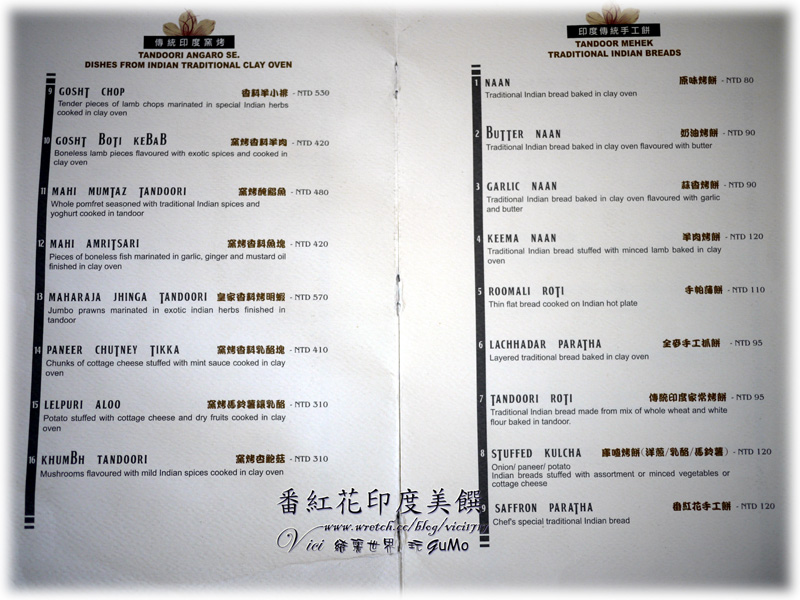 傳統印度窯烤
TANDOORI ANGARO SE.
DISHES FROM INDIAN TRADITIONAL CLAY OVEN
9 GOSHT CHOP 香料羊小排 - NTD 530
Tender pieces of lamb chops marinated in special Indian herbs
cooked in clay oven
10 GOSHT BOTI KEBAB 窯烤香料羊肉 - NTD 420
Boneless lamb pieces flavoured with exotic spices and cooked in
clay oven
11 MAHI MUMTAZ TANDOORI 窯烤醃鯧魚 - NTD 480
Whole pomfret seasoned with traditional Indian spices and
yoghurt cooked in tandoor
12 MAHI AMRITSARI 窯烤香料魚塊 - NTD 420
Pieces of boneless fish marinated in garlic, ginger and mustard oil
finished in clay oven
13 MAHARAJA JHINGA TANDOORI 皇家香料烤明蝦 - NTD 570
Jumbo prawns marinated in exotic indian herbs finished in
tandoor
14 PANEER CHUTNEY TIKKA 窯烤香料乳酪塊 - NTD 410
Chunks of cottage cheese stuffed with mint sauce cooked in clay
oven
15 LELPURI ALOO 窯烤馬鈴薯鑲乳酪 - NTD 310
Potato stuffed with cottage cheese and dry fruits cooked in clay
oven
16 KHUMBH TANDOORI 窯烤香鮑菇 - NTD 310
Mushrooms flavoured with mild Indian spices cooked in clay oven
印度傳統手工餅
TANDOOR MEHEK
TRADITIONAL INDIAN BREADS
1 NAAN 原味烤餅 - NTD 80
Traditional Indian bread baked in clay oven
2 BUTTER NAAN 奶油烤餅 - NTD 90
Traditional Indian bread baked in clay oven flavoured with butter
3 GARLIC NAAN 蒜香烤餅 - NTD 90
Traditional Indian bread baked in clay oven flavoured with garlic
and butter
4 KEEMA NAAN 羊肉烤餅 - NTD 120
Traditional Indian bread stuffed with minced lamb baked in clay
oven
5 ROOMALI ROTI 手帕薄餅 - NTD 110
Thin flat bread cooked on Indian hot plate
6 LACHHADAR PARATHA 全麥手工抓餅 - NTD 95
Layered traditional bread baked in clay oven
7 TANDOORI ROTI 傳統印度家常烤餅 - NTD 95
Traditional Indian bread made from mix of whole wheat and white
flour baked in tandoor.
8 STUFFED KULCHA 庫嚕烤餅(洋蔥/乳酪/馬鈴薯) - NTD 120
Onion/ paneer/ potato
Indian breads stuffed with assortment or minced vegetables or
cottage cheese
9 SAFFRON PARATHA 番紅花手工餅 - NTD 120
Chef's special traditional Indian bread
番紅花印度美饌
www.wretch.cc/blog/vici1717
Vici 繞著世界玩 GuMo